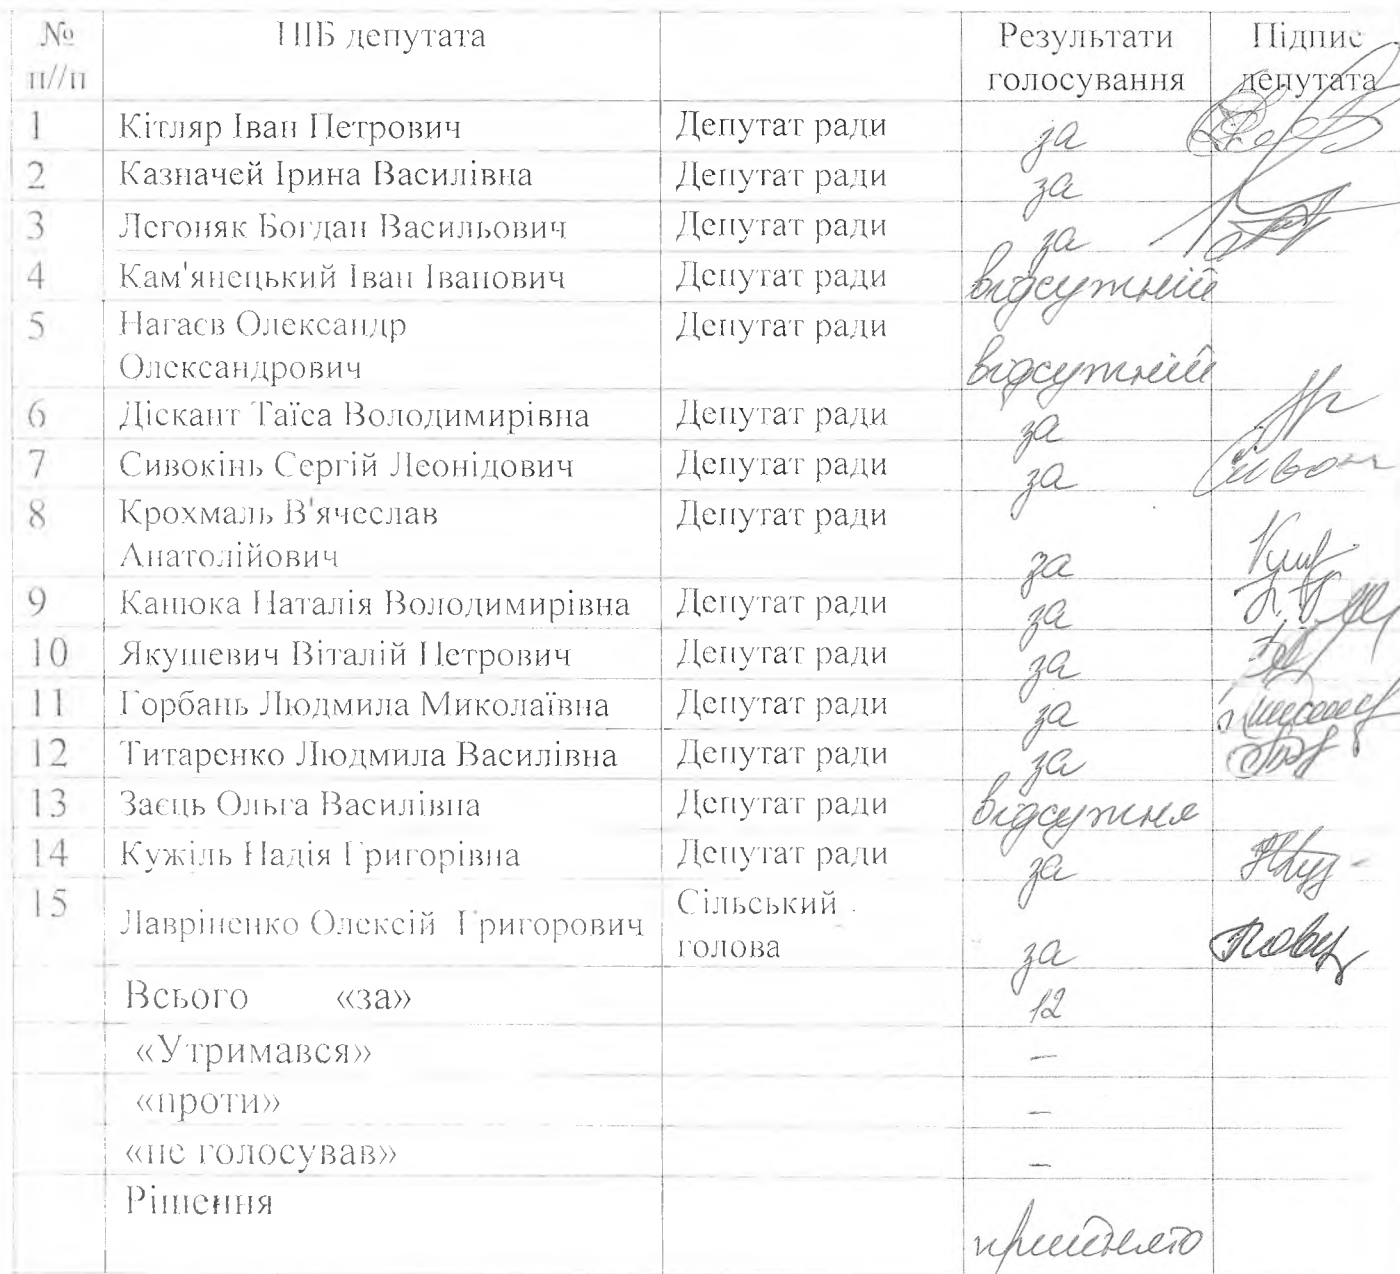 № ПІБ депутата Результати Підпис
п//п голосування депутата
1 Кітляр Іван Петрович Депутат ради за
2 Казначей Ірина Василівна Депутат ради за
3 Легоняк Богдан Васильович Депутат ради за
4 Кам'янецький Іван Іванович Депутат ради відсутній
5 Нагаєв Олександр Депутат ради
Олександрович відсутній
6 Діскант Таїса Володимирівна Депутат ради за
7 Сивокінь Сергій Леонідович Депутат ради за
8 Крохмаль В'ячеслав Депутат ради
Анатолійович за
9 Канюка Наталія Володимирівна Депутат ради за
10 Якушевич Віталій Петрович Депутат ради за
11 Горбань Людмила Миколаївна Депутат ради за
12 Титаренко Людмила Василівна Депутат ради за
13 Заєць Ольга Василівна Депутат ради відсутня
14 Кужіль Надія Григорівна Депутат ради за
15 Сільський
Лавріненко Олексій Григорович голова за
Всього «за» 12
«Утримався» –
«проти» –
«не голосував» –
Рішення
прийнято